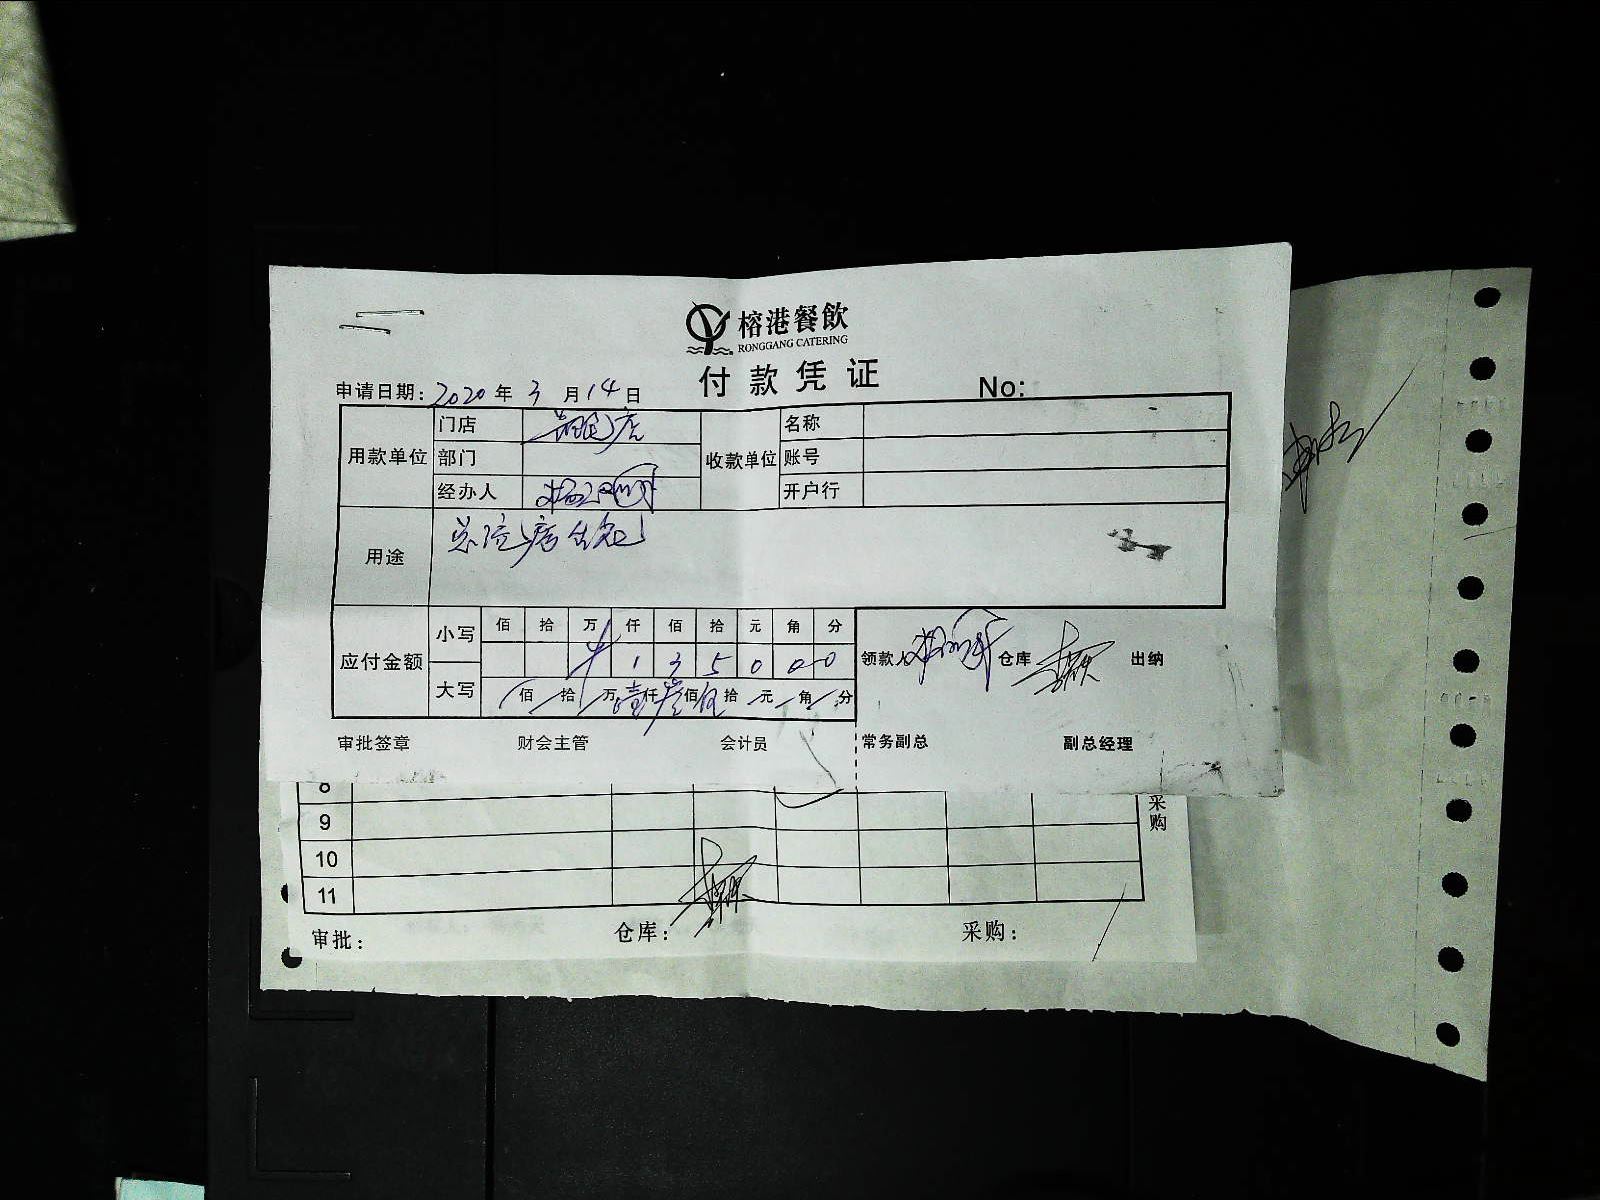 榕港餐飲
RONGGANG CATERING
付款凭证
申请日期：2020年3月14日 No:
用款单位 门店 收款单位 名称
部门 账号
经办人 开户行
用途
应付金额 小写 佰 拾 万 仟 佰 拾 元 角 分
¥ 1 3 5 0 0 0
大写 佰 拾 万 壹仟 叁佰 伍拾 元 角 分
领款人 仓库 出纳
审批签章 财会主管 会计员 常务副总 副总经理
8
9
10
11
采购
审批： 仓库： 采购：